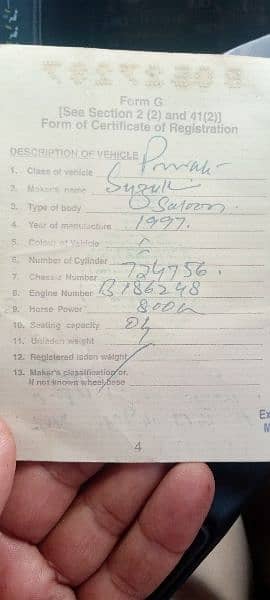 Form G
[See Section 2 (2) and 41(2)]
Form of Certificate of Registration
DESCRIPTION OF VEHICLE
1. Class of vehicle Private
2. Maker's name Suzuki
3. Type of body Saloon
4. Year of manufacture 1997.
5. Colour of Vehicle
6. Number of Cylinder
7. Chassiz Number 724756.
8. Engine Number B186248
9. Horse Power 800
10. Seating capacity 04
11. Unladen weight
12. Registered laden weight
13. Maker's classification or,
If not known wheel base
4
Ex
M